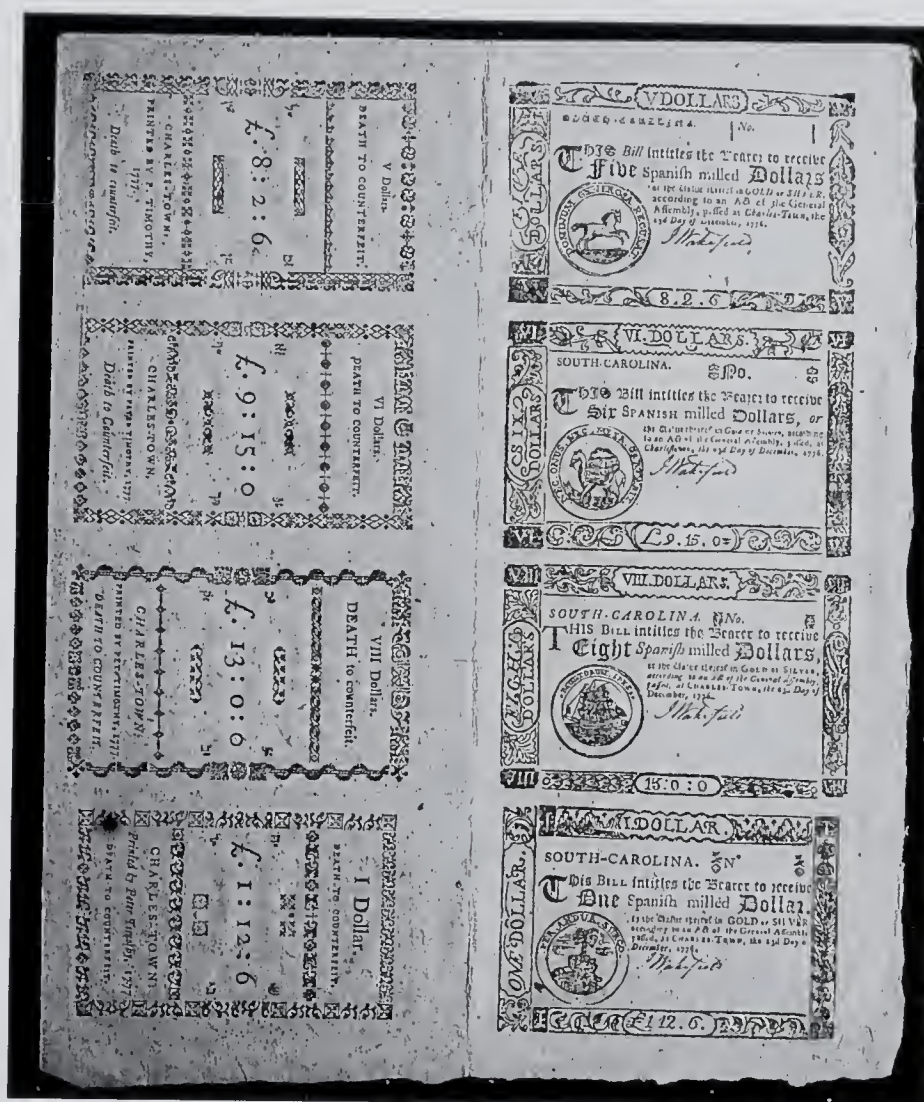 V Dollars.
DEATH TO COUNTERFEIT.
£. 8 : 2 : 6.
CHARLES-TOWN,
PRINTED BY P. TIMOTHY,
1777.
Death to counterfeit.
VI Dollars.
DEATH TO COUNTERFEIT.
£. 9 : 15 : 0
CHARLES-TOWN,
PRINTED BY PETER TIMOTHY, 1777.
Death to Counterfeit.
VIII Dollars.
DEATH to counterfeit.
£. 13 : 0 : 0
CHARLES-TOWN:
PRINTED BY PETER TIMOTHY, 1777.
DEATH TO COUNTERFEIT.
I Dollar.
DEATH TO COUNTERFEIT.
£. 1 : 12 : 6
CHARLES-TOWN:
Printed by Peter Timothy, 1777
DEATH TO COUNTERFEIT.
V DOLLARS
DOLLARS
SOUTH-CAROLINA. No.
THIS Bill intitles the Bearer to receive
Five Spanish milled Dollars
or the Value thereof in GOLD or SILVER,
according to an Act of the General
Assembly, passed at Charles-Town, the
23d Day of December, 1776.
J Wakefield
8.2.6
VI
VI. DOLLARS.
VI
SIX DOLLARS
SOUTH-CAROLINA. No.
THIS Bill intitles the Bearer to receive
Six SPANISH milled Dollars, or
the Value thereof in Gold or Silver, according
to an Act of the General Assembly, passed, at
Charlestown, the 23d Day of December, 1776.
J Wakefield
VI
£.9.15.0
VIII
VIII. DOLLARS.
EIGHT DOLLARS
SOUTH-CAROLINA. No.
THIS BILL intitles the Bearer to receive
Eight Spanish milled Dollars,
or the Value thereof in GOLD or SILVER,
according to an Act of the General Assembly,
passed, at CHARLES-TOWN, the 23d Day of
December, 1776.
J Wakefield
VIII
13:0:0
I
I. DOLLAR.
I
ONE DOLLAR.
SOUTH-CAROLINA. No
This BILL intitles the Bearer to receive
One Spanish milled Dollar.
or the Value thereof in GOLD or SILVER
according to an Act of the General Assembly
passed, at CHARLES-TOWN, the 23d Day of
December, 1776.
J Wakefield
I
£1 12.6.